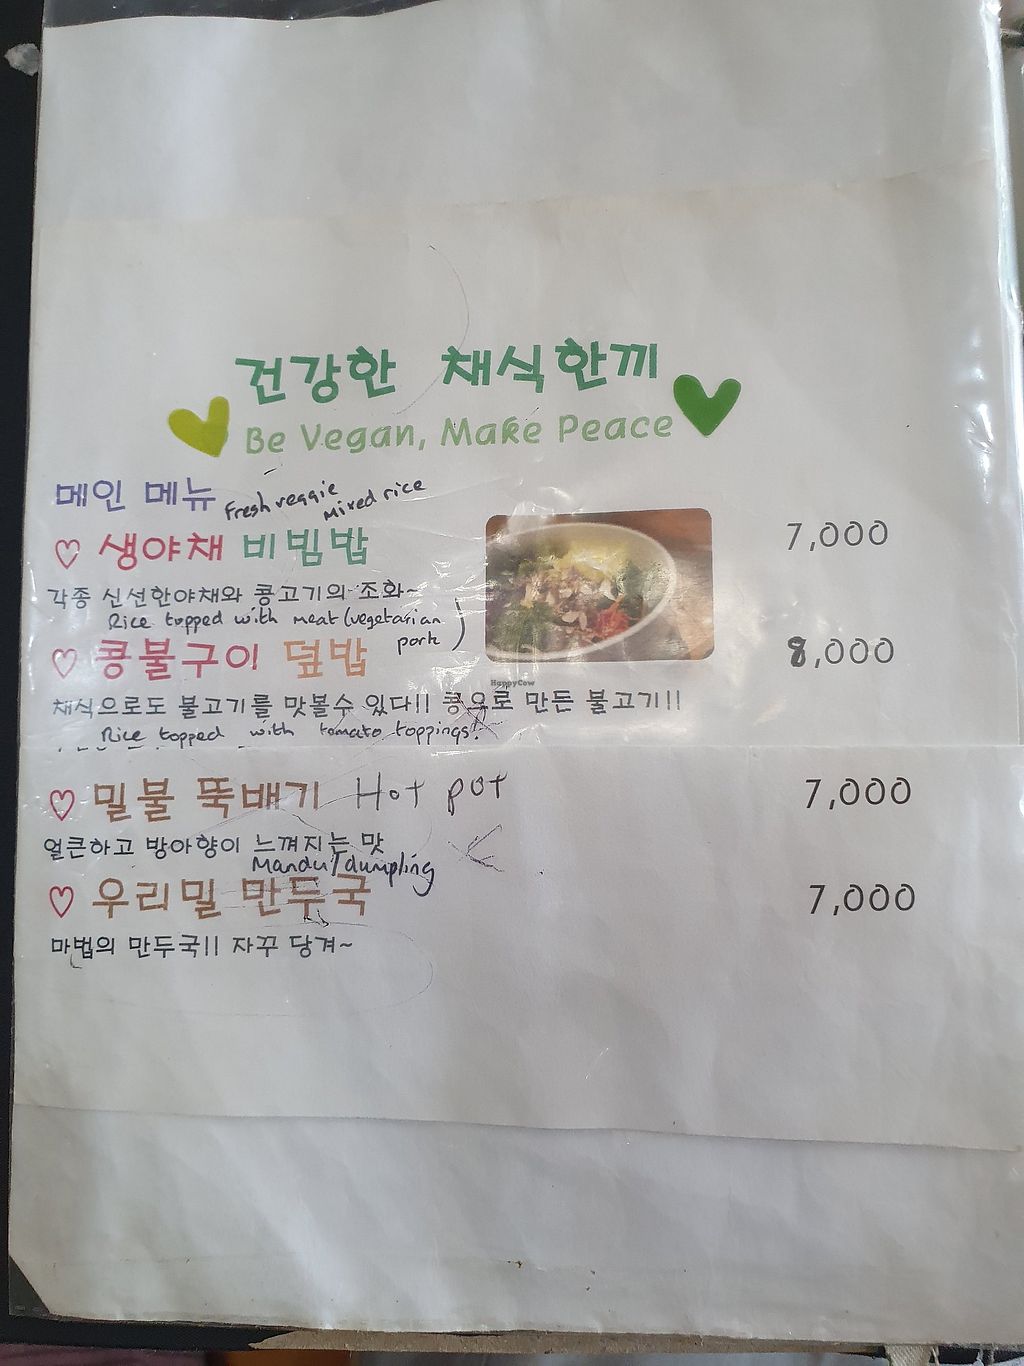 건강한 채식한끼
Be Vegan, Make Peace
메인 메뉴 Fresh veggie Mixed rice
♡ 생야채 비빔밥 7,000
각종 신선한야채와 콩고기의 조화~
Rice topped with meat (vegetarian pork)
♡ 콩불구이 덮밥 8,000
HappyCow
채식으로도 불고기를 맛볼수 있다!! 콩으로 만든 불고기!!
Rice topped with tomato toppings?
♡ 밀불 뚝배기 Hot pot 7,000
얼큰하고 방아향이 느껴지는 맛
Mandu/dumpling
♡ 우리밀 만두국 7,000
마법의 만두국!! 자꾸 당겨~